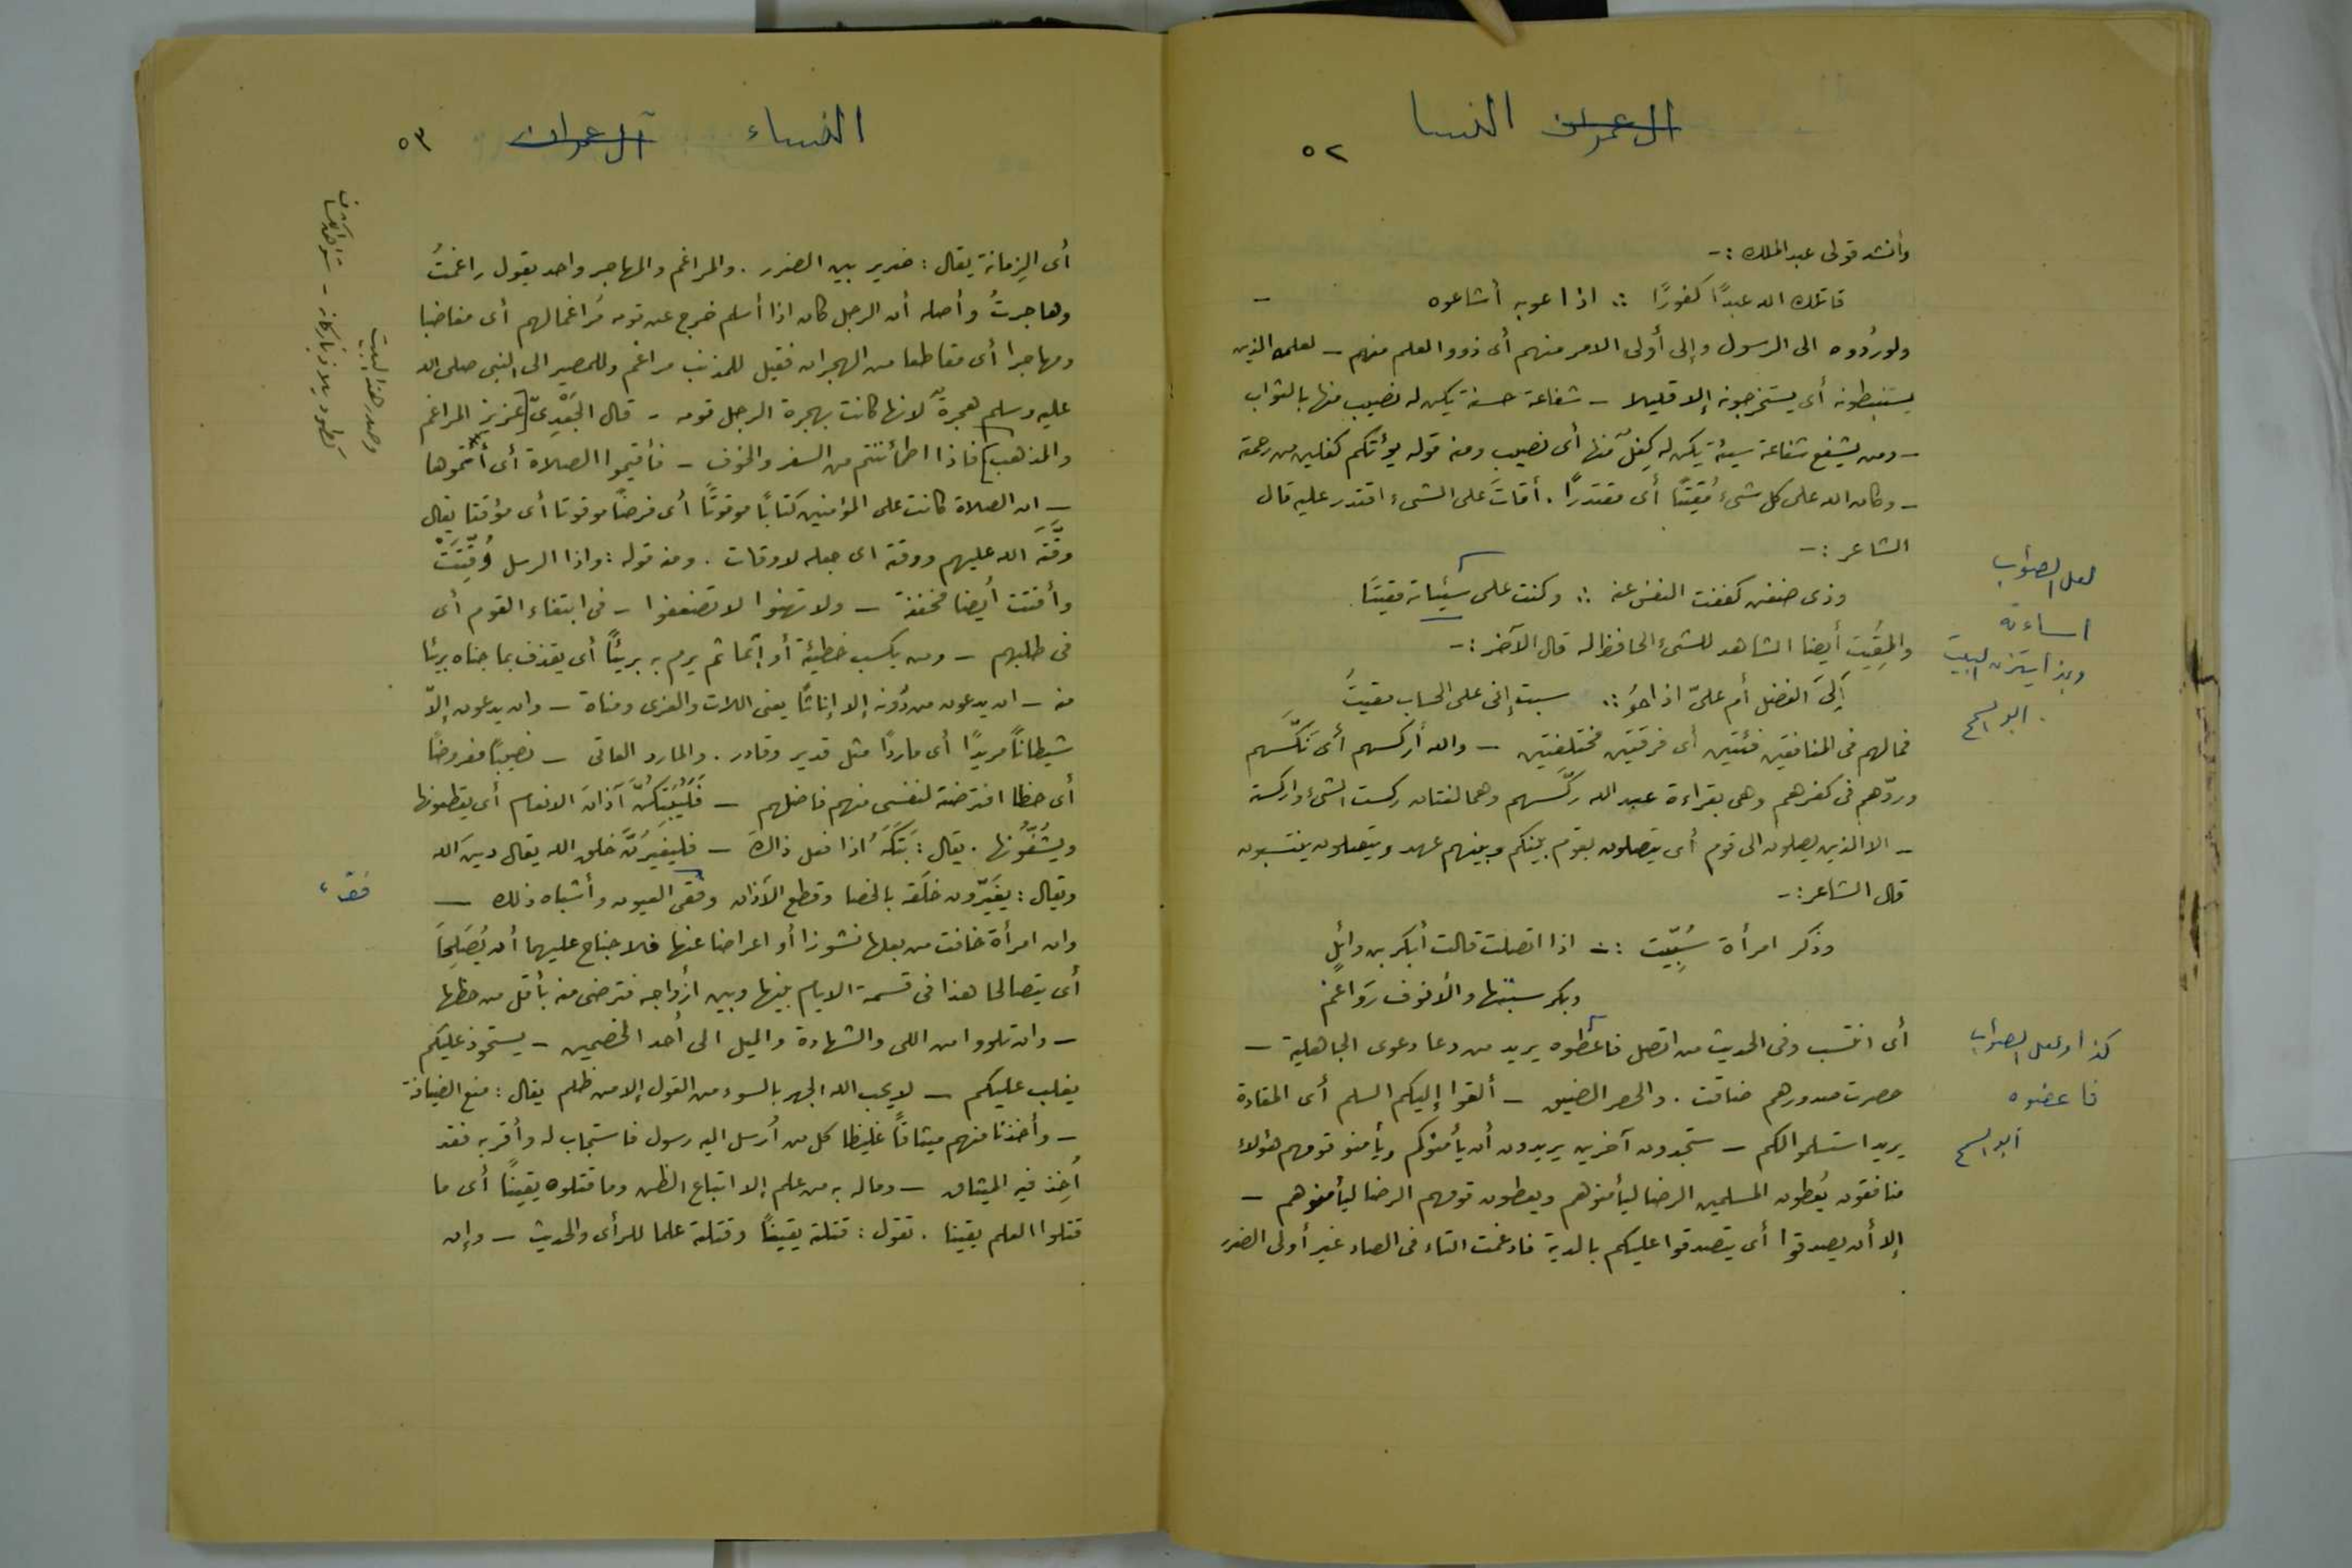 آل عمران النسا
٥٢
وأنشد قولى عبد الملك :-
قاتلك الله عبدًا كفورًا ∴ اذا عوبه أشاعوه -
ولو ردُوه الى الرسول وإلى أولى الامر منهم أى ذوو العلم منهم - لعلمه الذين
يستنبطونه أى يستخرجونه إلا قليلا - شفاعة حسنة يكن له نصيب منها بالثواب
- ومن يشفع شفاعة سيئة يكن له كِفلٌ منها أى نصيب ومنه قوله يؤتكم كفلين من رحمته
- وكان الله على كل شىءٍ مُقيتًا أى مقتدرًا . أقاتَ على الشىء اقتدر عليه قال
الشاعر :-
وذى ضغن كففت النفس عنه ∴ وكنت على سيئاته مقيتًا.
والمقِيَت أيضا الشاهد للشىء الحافظ له قال الآخر :-
أَلىَ الفضل أم علىّ اذا حوُ ∴ سبت إنى على الحساب مقيتُ
فما لهم فى المنافقين فئتين أى فرقتين مختلفتين - والله أركسهم أى نَكّسَهم
وردّهم فى كفرهم وهى بقراءة عبد الله ركّسهم وهما لغتان ركست الشىء واركسته
- الا الذين يصلون الى قوم أى يتصلون بقوم بينكم وبينهم عهد ويتصلون ينتسبون
قال الشاعر :-
وذكر امرأة سُبّيت :- اذا اتصلت قالت أبكر بن وائل
وبكر سبتها والأنوف رَواغمُ
أى انتسب وفى الحديث من اتصل فاعظوه يريد من دعا دعوى الجاهلية -
حصرت صدورهم ضاقت . والحصر الضيق - ألقوا إليكم السلم أى المقادة
يريد استسلموا لكم - ستجدون آخرين يريدون أن يأمنوكم ويأمنو قومهم هؤلاء
منافقون يُعطون المسلمين الرضا ليأمنوهم ويعطون قومهم الرضا ليأمنوهم -
إلا أن يصدقوا أى يتصدقوا عليكم بالدية فادغمت التاء فى الصاد غير أولى الضرر
لعل الصواب
اساءته
وبهذا يتزن البيت
ابو السمح
كذا ولعل الصواب
فاعضوه
ابو السمح
النساء آل عمران
٥٣
أى الزِمانة يقال : ضرير بين الضرر . والمراغم والمهاجر واحد يقول راغمتُ
وهاجرتُ وأصله أن الرجل كان اذا أسلم خرج عن قومه مُراغما لهم أى مغاضبا
ومهاجرا أى مقاطعا من الهجران فقيل للمذهب مراغم وللمصير الى النبى صلى الله
عليه وسلم هجرةٌ لانها كانت بهجرة الرجل قومه - قال الجَعْدِىّ [عزيز المراغم
والمذهب] فاذا اطمأننتم من السفر والخوف - فأقيموا الصلاة أى أتمّوها
- ان الصلاة كانت على المؤمنين كتابًا موقوتًا أى فرضًا موقوتا أى مؤقتا يقال
وقَّتَه الله عليهم ووقته اى جعله لاوقات . ومنه قوله : واذا الرسل وُقِّتَتْ
وأقتت أيضا مخففة - ولا تهنوا لا تضعفوا - فى ابتغاء القوم أى
فى طلبهم - ومن يكسب خطيئة أو إثما ثم يرم به بريئًا أى يقذف بما جناه بريئا
منه - ان يدعون من دُونه إلا إناثًا يعنى اللات والعزى ومناة - وان يدعون إلاّ
شيطانًا مريدًا أى ماردًا مثل قدير وقادر . والمارد العاتى - نصيبًا مفروضًا
أى حظا افترضته لنفسى منهم فاضلهم - فَلَيُبَتِكُنَّ آذانَ الانعام أى يقطعونها
ويشُقُّونها . يقال : بَتَكَهُ اذا فعل ذالك - فليغيرُنَّ خلق الله يقال دين الله
ويقال : يغَيّرون خلقه بالخصا وقطع الآذان وفقى العيون وأشباه ذلك -
وان امرأة خافت من بعلها نشوزا أو اعراضا عنها فلا جناح عليهما أن يُصَلِحَا
أى يتصالحا هذا فى قسمة الايام بينها وبين أزواجه فترضى منه بأقل من حظها
- وان تلووا من اللى والشهادة والميل الى أحد الخصمين - يستحوذ عليكم
يغلب عليكم - لا يحب الله الجهر بالسوء من القول إلا من ظلم يقال : منع الضيافة
- وأخذنا منهم ميثاقًا غليظا كل من أرسل اليه رسول فاستجاب له وأقر به فقد
أُخِذ فيه الميثاق - وما له به من علم إلا اتباع الظن وما قتلوه يقينًا أى ما
قتلوا العلم يقينا . تقول : قتلته يقينًا وقتلته علما للرأى والحديث - وإن
وصدر هذا البيت
كطود يلاذ بأركانه -
فقء